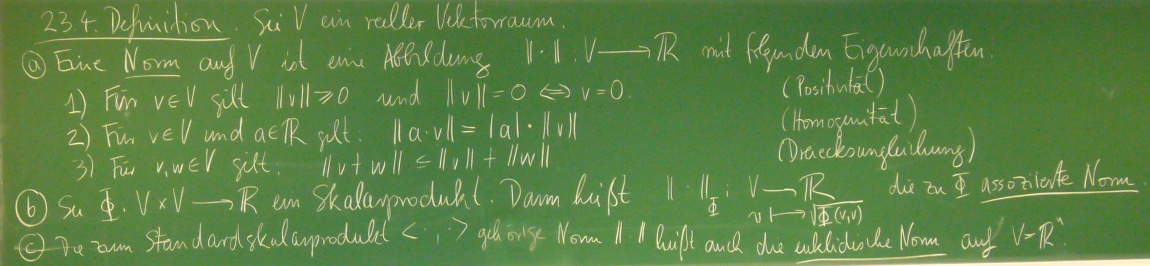 23.4. Definition. Sei V ein reeller Vektorraum.
(a) Eine Norm auf V ist eine Abbildung ‖·‖ : V ⟶ ℝ mit folgenden Eigenschaften.
1) Für v∈V gilt ‖v‖ ≥ 0 und ‖v‖ = 0 ⟺ v = 0. (Positivität)
2) Für v∈V und a∈ℝ gilt: ‖a·v‖ = |a|·‖v‖ (Homogenität)
3) Für v,w∈V gilt: ‖v+w‖ ≤ ‖v‖ + ‖w‖ (Dreiecksungleichung)
(b) Sei Φ: V×V ⟶ ℝ ein Skalarprodukt. Dann heißt ‖·‖_Φ : V ⟶ ℝ die zu Φ assoziierte Norm.
v ⟼ √Φ(v,v)
(c) Die zum Standardskalarprodukt <·,·> gehörige Norm ‖·‖ heißt auch die euklidische Norm auf V=ℝⁿ